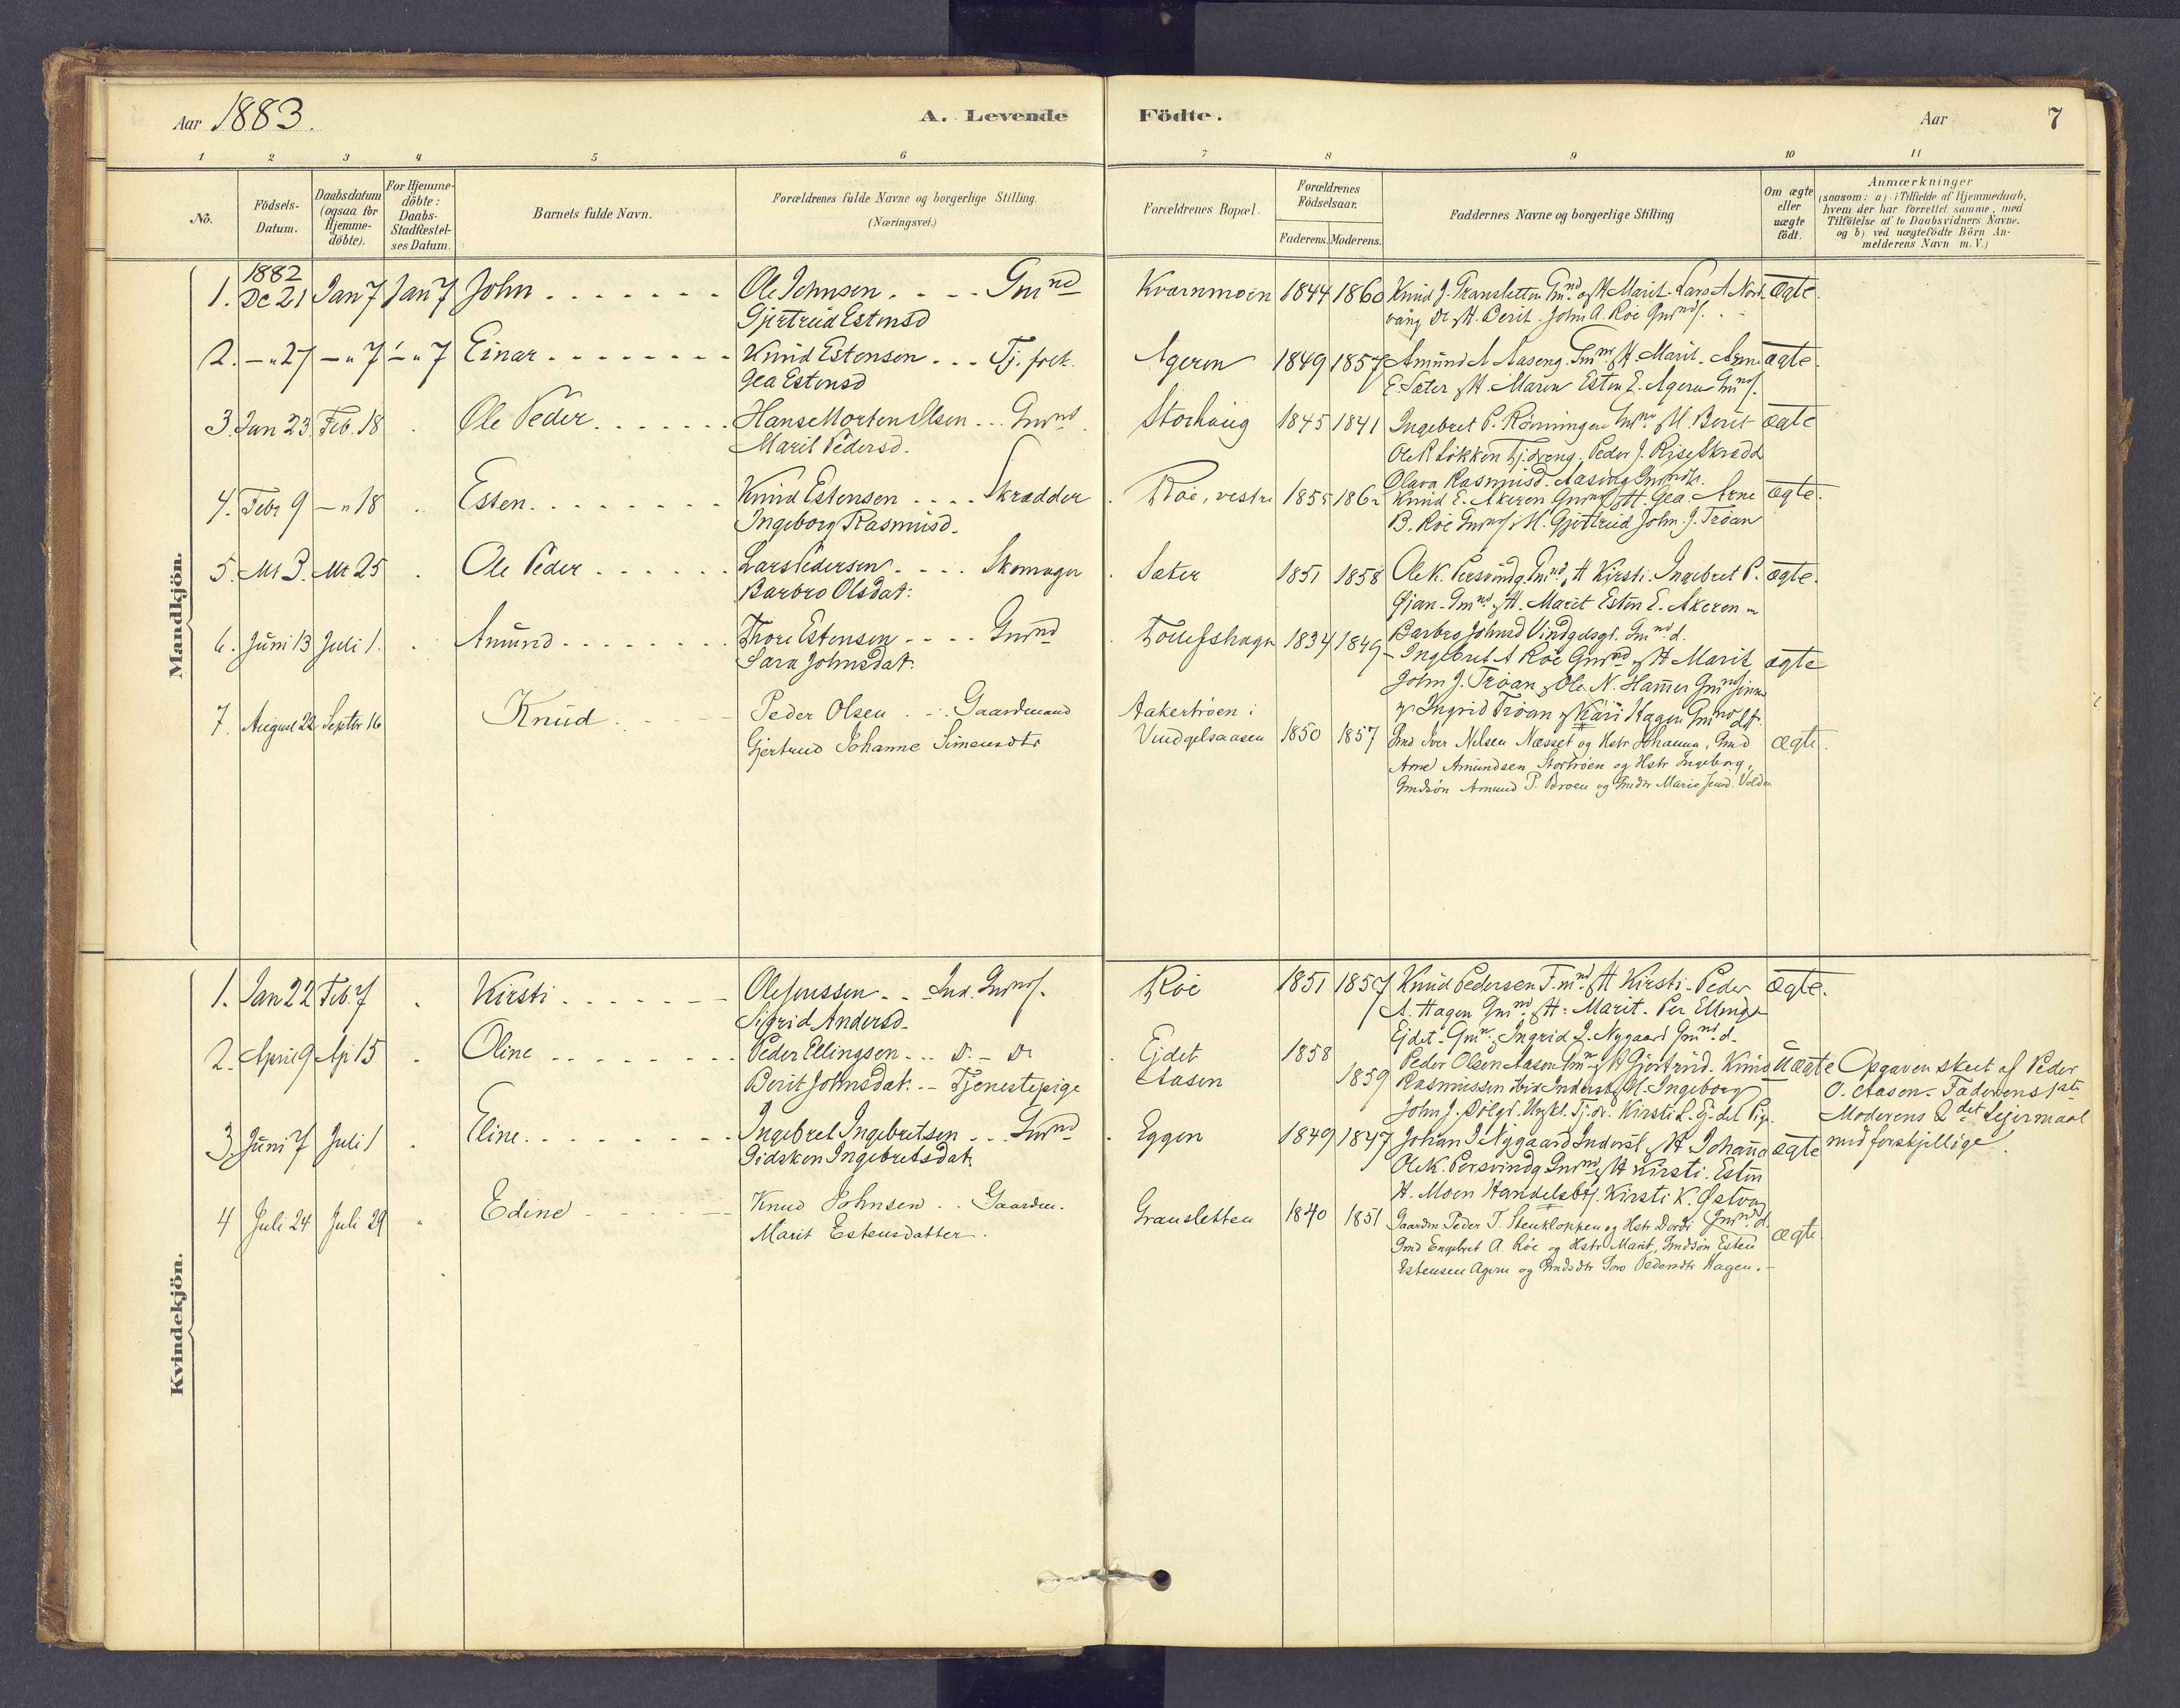 Aar 1883.
A. Levende Födte.
Aar
7
1 2 3 4 5 6 7 8 9 10 11
No.
Födsels-Datum.
Daabsdatum (ogsaa for Hjemme-döbte).
For Hjemme-döbte: Daabs-Stadfæstel-ses Datum.
Barnets fulde Navn.
Forældrenes fulde Navne og borgerlige Stilling.
(Næringsvei.)
Forældrenes Bopæl.
Forældrenes Födselsaar.
Faderens. Moderens.
Faddernes Navne og borgerlige Stilling
Om ægte eller uægte födt.
Anmærkninger
(saasom: a) i Tilfælde af Hjemmedaab,
hvem der har forrettet samme, med
Tilföielse af to Daabsvidners Navne.
og b) ved uægtefödte Börn An-
melderens Navn m. V.)
Mandkjön.
1882
1. Dc 21 Jan 7 Jan 7 John Ole Johnsen Gmnd Kvarnmoen 1844 1860 Knud J. Gransletten Gmnd og H Marit. Lars A Nord- ægte.
Gjertrud Estensd vang Do og H. Berit. John A. Röe Gmnds.
2. - " 27 - " 7 - " 7 Einar Knud Estensen Tj. folk Ageren 1849 1857 Amund A Aaseng Gmnd og H. Marit. Arne ægte.
Gea Estensd E. Sæter og H. Maren Esten E. Ageren Gmnds.
3. Jan 23 Feb. 18 Ole Peder Hans Morten Olsen Gmnd Storhaug 1845 1841 Ingebret P. Rönningen Gmnd og H. Berit ægte
Marit Pedersd. Ole R Løkken Tjdreng. Peder J. Rise Skrædd
Olava Rasmusd. Aasing Gmndtr.
4. Febr 9 - " 18 Esten Knud Estensen Skrædder Röe, vestre 1855 1862 Knud E. Akeren Gmnd og H. Gea. Arne ægte.
Ingeborg Rasmusd. B. Röe Gmnd og H. Gjertrud John J. Tröan
5. Mt 3. Mt 25 Ole Peder Lars Pedersen Skomager Sæter 1851 1858 Ole K. Persvindg. Gmnd, H Kirsti. Ingebret P. ægte.
Barbro Olsdat: Øjan Gmnd og H. Marit Esten E. Akeren
Barbro Johnsd Vindgelsgt. Gmnd. d.
6. Juni 13 Juli 1. Amund Thore Estensen Gmnd Tollefshagn 1834 1849 Ingebret A Röe Gmnd og H Marit ægte
Sara Johnsdat. John J. Tröan og Ole N. Hamer Gmnds
og Ingrid Tröan og Kari Hagen
7. August 22 Septbr 16 Knud Peder Olsen Gaardmand Aakertröen i
Gjertrud Johanne Simensdtr Vindgelsaasen 1850 1857 Gmd Iver Nilsen Næsset og Hstr Johanna, Gmd ægte.
Arne Amundsen Stortröen og Hstr Ingeborg,
Gmdsön Amund P. Broen og Gmdtr Marie Volden
Kvindekjön.
1. Jan 22 Feb. 7 Kirsti Ole Jenssen Ind. Gmnds. Röe 1851 1857 Knud Pedersen F.mnd. og H Kirsti. Peder ægte.
Sigrid Andersd. A. Hagen Gmnd og H. Marit. Per Ellings
Ejdet. Gmn. Ingrid J. Nygaard Gmnd. d.
2. April 9 Ap 15 Oline Peder Ellingsen D. - Dr Ejdet 1858 Peder Olsen Aasen Gmnd og H Gjertrud. Knud Uægte Opgaven skeet af Peder
Berit Johnsdat. Tjenestepige Aasen 1859 Rasmussen ibid Inderst og H. Ingeborg O. Aasen. Faderens 1ste
John J. Kirsti Ejdet Pige Moderens 2det Lejermaal
3. Juni 7 Juli 1 Eline Ingebret Ingebretsen Gmnd Eggen 1849 1847 Johan J Nygaard Inderst og H Johanna ægte med forskjellige.
Gidsken Ingebretsdat. Ole K. Persvindg Gmnd og H Kirsti. Esten
H. Moen Handelsbtj. Kirsti K. Østvang
4 Juli 24 Juli 29 Edine Knud Johnsen Gaardm. Gransletten 1840 1851 Gaardm Peder T. Stenkloppen og Hstr Dordi Gmnd. d. ægte
Marit Estensdatter. Gmd Engebret A. Röe og Hstr Marit, Gmdsön Esten
Estensen Ageren og Gmdsdtr Goro Pedersdtr Hagen.